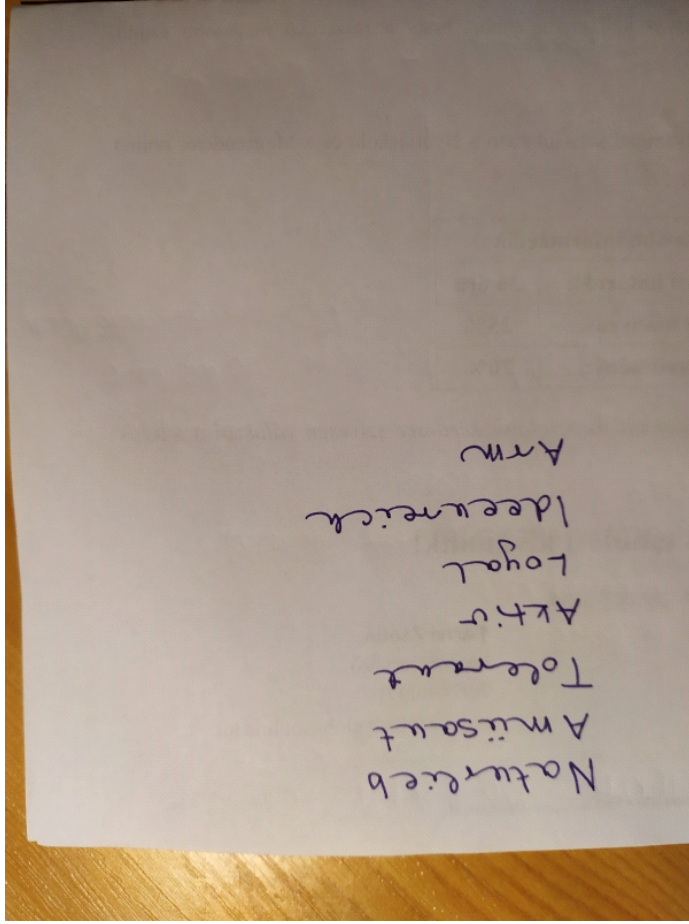 Naturlieb
Amüsant
Tolerant
Aktiv
Loyal
Ideenreich
Arm